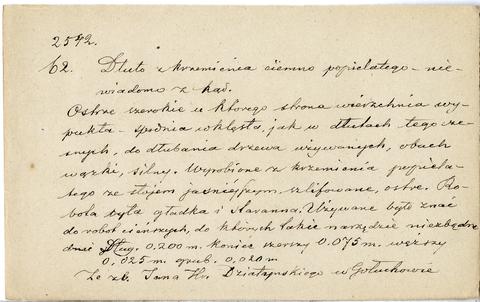 2592.
62. Dłuto z krzemienia ciemno popielatego - nie-
wiadomo z kąd.
Ostrze szerokie u którego strona wierzchnia wy-
pukła - spodnia wklęsła, jak w dłutach tegocze-
snych, do dłubania drzewa używanych, obuch
wązki, silny. Wyrobione z krzemienia popiela-
tego ze słojem jaśniejszym, szlifowane, ostre. Ro-
bota była gładka i staranna. Używane było znać
do robot cieńszych, do których takie narzędzie niezbędne
Dług. 0,200 m. koniec szerszy 0.075 m. węższy
0,025 m. grub. 0,020 m
Ze zb. Jana Hr. Działyńskiego w Gołuchowie